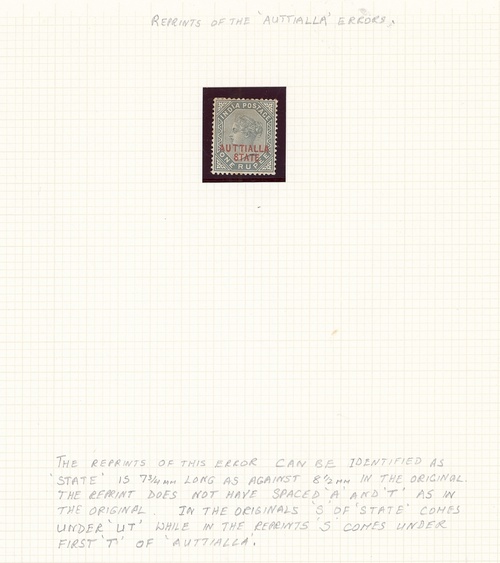 REPRINTS OF THE 'AUTTIALLA' ERRORS.
INDIA POSTAGE
AUTTIALLA
STATE
ONE RUPEE
THE REPRINTS OF THIS ERROR CAN BE IDENTIFIED AS
'STATE' IS 7¾ mm LONG AS AGAINST 8½ mm IN THE ORIGINAL.
THE REPRINT DOES NOT HAVE SPACED 'A' AND 'T' AS IN
THE ORIGINAL. IN THE ORIGINALS 'S' OF 'STATE' COMES
UNDER 'UT' WHILE IN THE REPRINTS 'S' COMES UNDER
FIRST 'T' OF 'AUTTIALLA'.